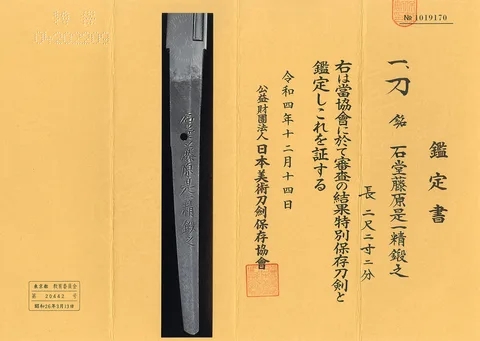 № 1019170
鑑定書
一、刀 銘 石堂藤原是一精鍛之
長 二尺二寸二分
右は當協會に於て審査の結果特別保存刀剣と
鑑定しこれを証する
令和四年十二月十四日
公益財團法人 日本美術刀剣保存協會
藤原是一精鍛之
東京都 教育委員会
第 20442 号
昭和26年3月13日